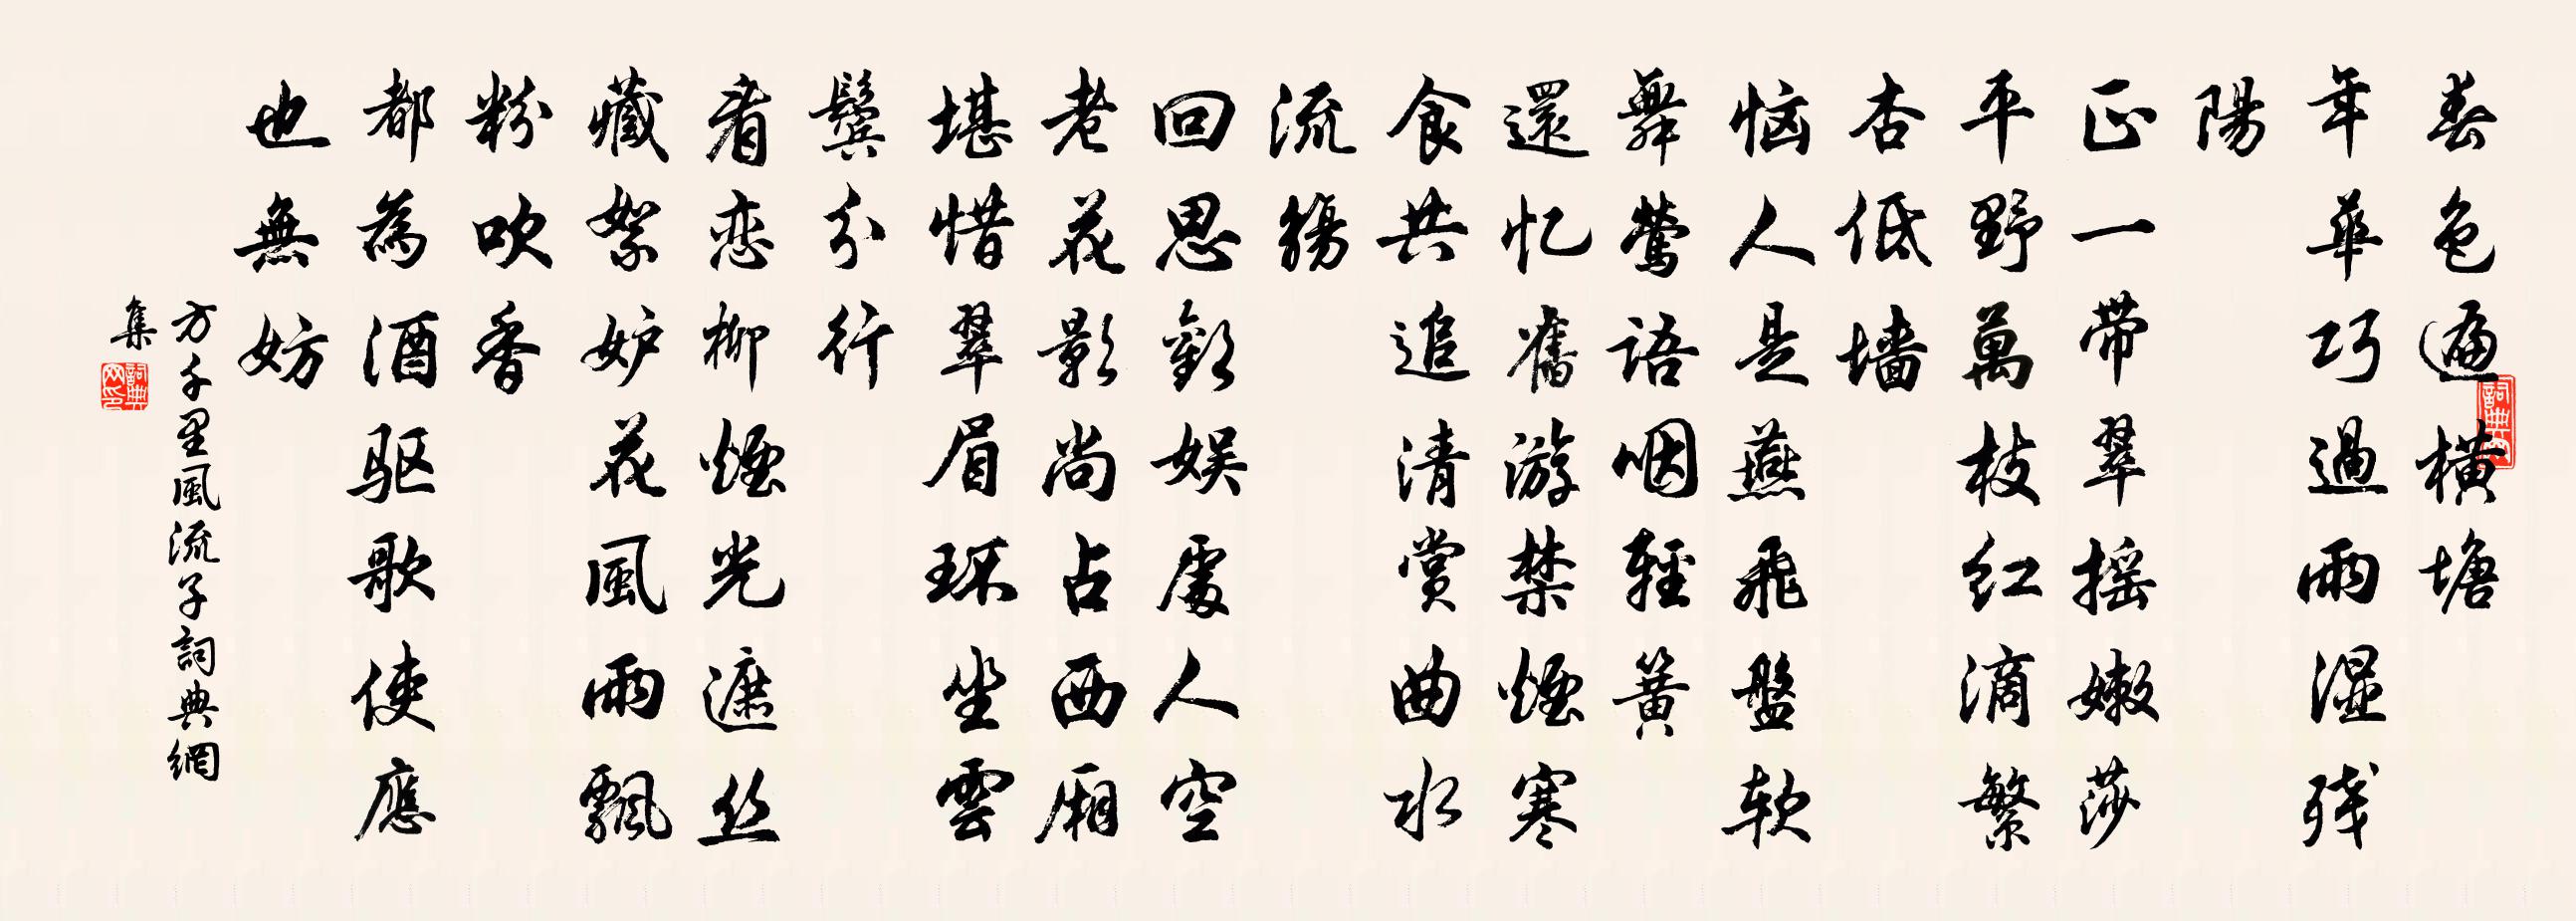 春色遍橫塘
年華巧過雨湿残
陽
正一带翠摇嫩莎
平野萬枝红滴繁
杏低墙
恼人是燕飛盤软
舞鶯語咽輕簧
還忆舊游禁煙寒
食共追清賞曲水
流觴
回思歡娱處人空
老花影尚占西厢
堪惜翠眉环坐雲
鬢分行
看恋柳煙光遮丝
藏絮妒花風雨飄
粉吹香
都為酒驱歌使應
也無妨
方千里風流子詞典網
集